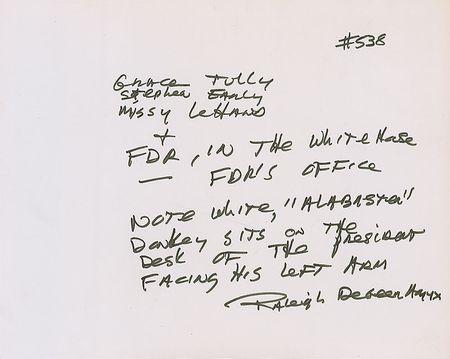 #538
Grace Tully
Stephen Early
Missy LeHand
+
FDR, IN THE White House
— FDR'S OFFICE
NOTE White, "ALABASTER"
Donkey SITS ON THE
Desk OF THE President
FACING HIS LEFT ARM
Raleigh